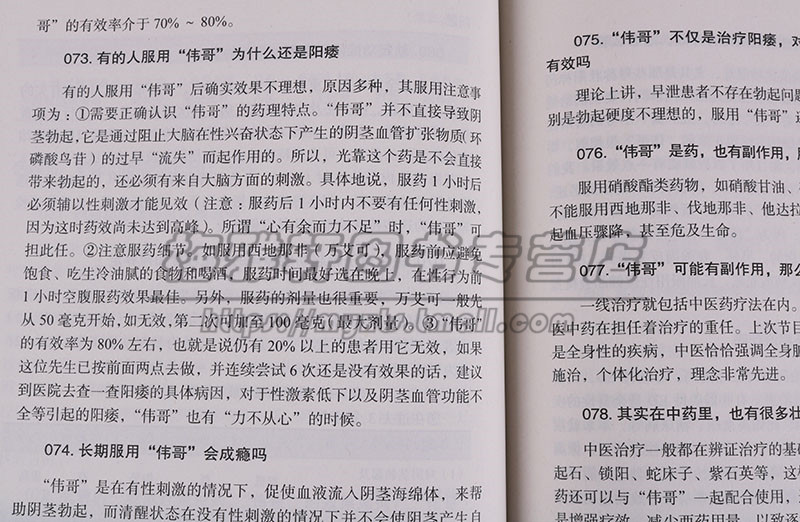 哥”的有效率介于 70% ~ 80%。
073. 有的人服用“伟哥”为什么还是阳痿
有的人服用“伟哥”后确实效果不理想，原因多种，其服用注意事
项为：①需要正确认识“伟哥”的药理特点。“伟哥”并不直接导致阴
茎勃起，它是通过阻止大脑在性兴奋状态下产生的阴茎血管扩张物质（环
磷酸鸟苷）的过早“流失”而起作用的。所以，光靠这个药是不会直接
带来勃起的，还必须有来自大脑方面的刺激。具体地说，服药 1 小时后
必须辅以性刺激才能见效（注意：服药后 1 小时内不要有任何性刺激，
因为这时药效尚未达到高峰）。所谓“心有余而力不足”时，“伟哥”可
担此任。②注意服药细节，如服用西地那非（万艾可），服药前应避免
饱食、吃生冷油腻的食物和喝酒，服药时间最好选在晚上，在性行为前
1 小时空腹服药效果最佳。另外，服药的剂量也很重要，万艾可一般先
从 50 毫克开始，如无效，第二次可加至 100 毫克（最大剂量）。③“伟哥”
的有效率为 80% 左右，也就是说仍有 20% 以上的患者用它无效，如果
这位先生已按前面两点去做，并连续尝试 6 次还是没有效果的话，建议
到医院去查一查阳痿的具体病因，对于性激素低下以及阴茎血管功能不
全等引起的阳痿，“伟哥”也有“力不从心”的时候。
074. 长期服用“伟哥”会成瘾吗
“伟哥”是在有性刺激的情况下，促使血液流入阴茎海绵体，来帮
助阴茎勃起，而清醒状态在没有性刺激的情况下并不会使阴茎产生自
075. “伟哥”不仅是治疗阳痿，对
有效吗
理论上讲，早泄患者不存在勃起问题
别是勃起硬度不理想的，服用“伟哥”
076. “伟哥”是药，也有副作用，
服用硝酸酯类药物，如硝酸甘油、
不能服用西地那非、伐地那非、他达拉
起血压骤降，甚至危及生命。
077. “伟哥”可能有副作用，那么
一线治疗就包括中医药疗法在内。
医中药在担任着治疗的重任。上次节目
是全身性的疾病，中医恰恰强调全身
施治，个体化治疗，理念非常先进。
078. 其实在中药里，也有很多壮
中医治疗一般都在辨证治疗的基础
起石、锁阳、蛇床子、紫石英等，这
药还可以与“伟哥”一起配合使用，
是增强疗效，减少西药用量，以致逐
图书专营店